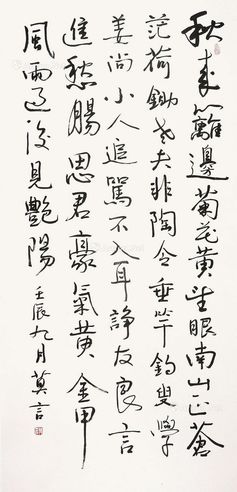 秋来籬邊菊花黄望眼南山正蒼
茫荷鋤老夫非陶令垂竿釣叟学
姜尚小人追罵不入耳諍友良言
進愁腸思君豪氣黄金甲
風雨過後見艷陽壬辰九月莫言